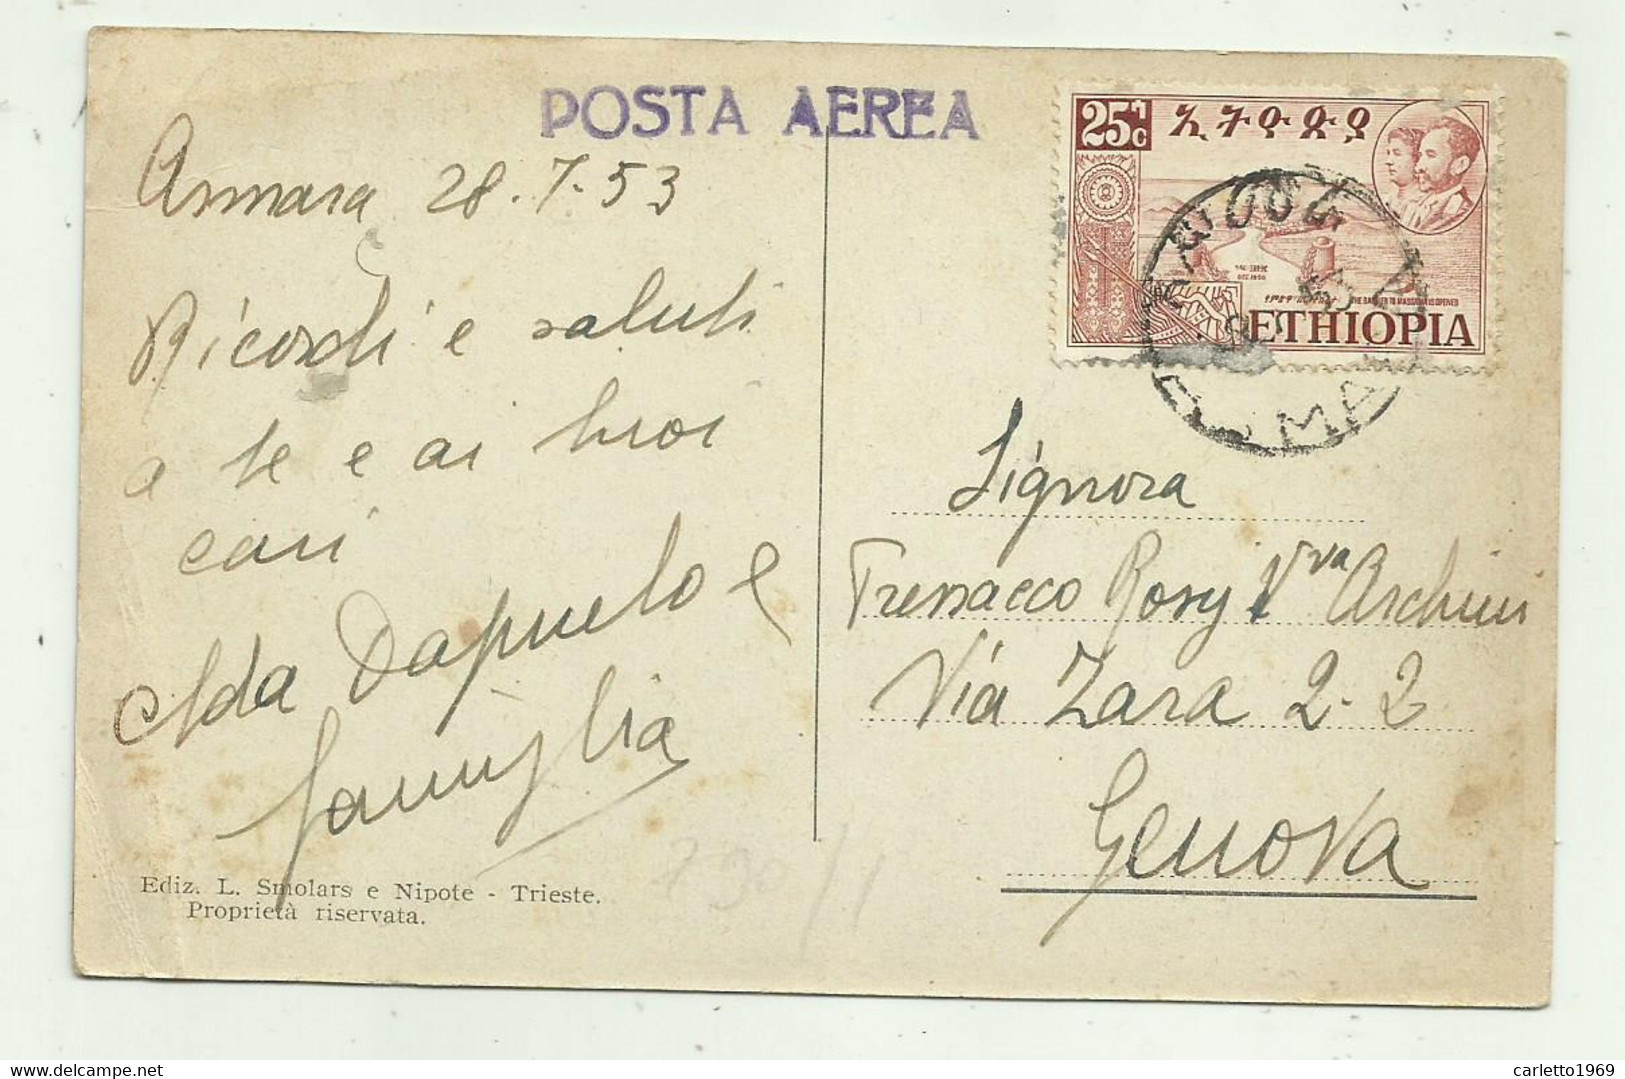 POSTA AEREA
Asmara 28.7.53
Ricordi e saluti
a te e ai tuoi
cari
Ada Dapuelo e
famiglia
Ediz. L. Smolars e Nipote - Trieste.
Proprietà riservata.
25 C
ኢትዮጵያ
THE BARRIER TO MASSAWA IS OPENED
ETHIOPIA
Signora
Tressacco Rosy Vva Archini
Via Zara 2-2
Genova
790/1
carletto1969